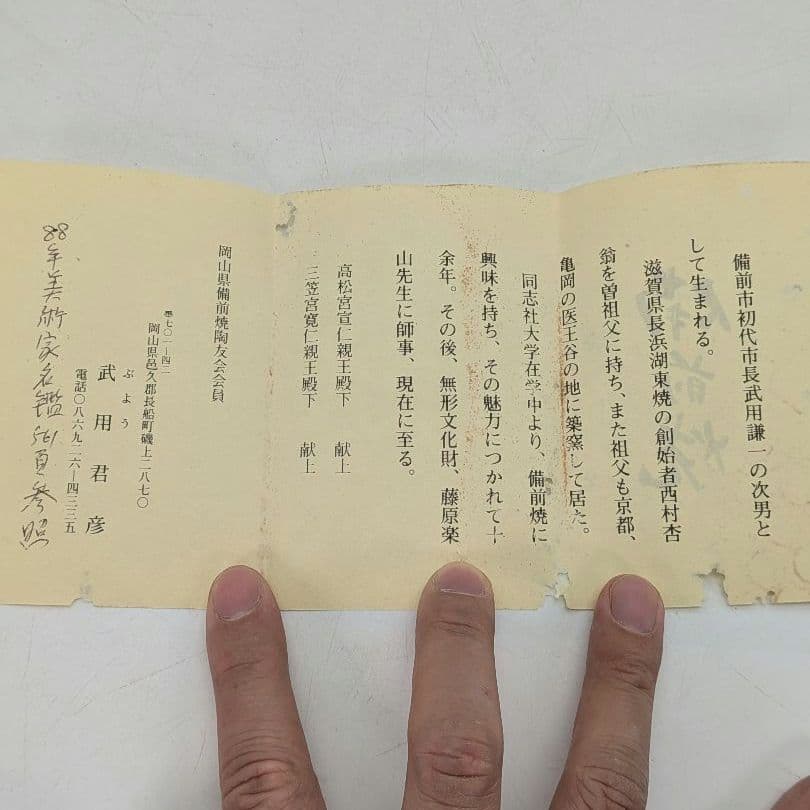 備前市初代市長武用謙一の次男と
して生まれる。
滋賀県長浜湖東焼の創始者西村杏
翁を曽祖父に持ち、また祖父も京都、
亀岡の医王谷の地に築窯して居た。
同志社大学在学中より、備前焼に
興味を持ち、その魅力につかれて十
余年。その後、無形文化財、藤原楽
山先生に師事、現在に至る。
高松宮宣仁親王殿下 献上
三笠宮寛仁親王殿下 献上
岡山県備前焼陶友会会員
〒七〇一―四二
岡山県邑久郡長船町磯上二八七〇
ぶよう
武用君彦
電話〇八六九二六―四三三五
88年美術家名鑑561頁参照